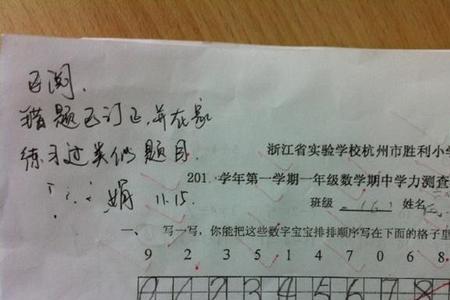 已阅.
错题已订正,并在家
练习过类似题目.
娟 11.15.
浙江省实验学校杭州市胜利小学
201 学年第一学期一年级数学期中学力测查
班级 (6) 姓名
一、 写一写,你能把这些数字宝宝排排顺序写在下面的格子里
9 2 3 5 1 4 7 0 6 8
0 1 2 3 4 5 6 7 8